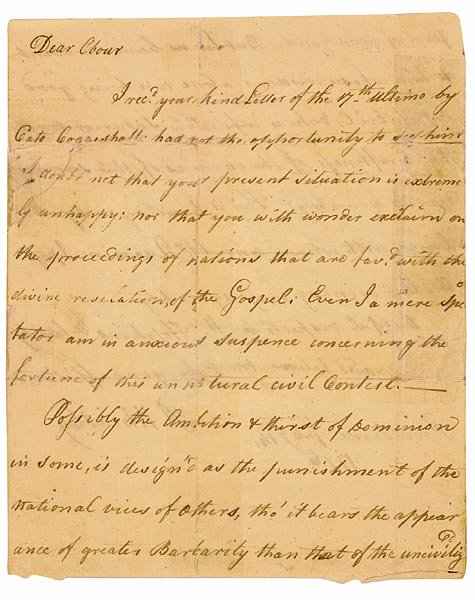 Dear Obour
I rec.d your kind Letter of the 17.th Ultimo by
Cato Coggeshall: had not the opportunity to see him
I doubt not that your present situation is extreme
ly unhappy: nor that you with wonder exclaim on
the proceedings of nations that are fav.d with the
divine revelation, of the Gospel. Even I a mere spec
tator am in anxious suspence concerning the
fortune of this unnatural civil Contest.—
Possibly the Ambition & thirst of Dominion
in some, is design'd as the punishment of the
national vices of others, tho' it bears the appear
ance of greater Barbarity than that of the unciviliz.d